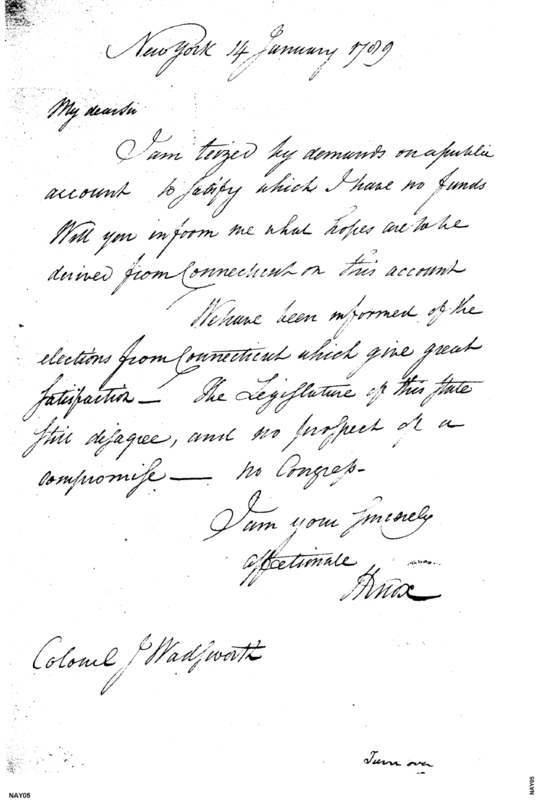 New York 14 January 1789
My dear sir
I am teized by demands on a public
account to satisfy which I have no funds
Will you inform me what hopes are to be
derived from Connecticut on this account
We have been informed of the
elections from Connecticut which give great
satisfaction — The Legislature of this state
still disagree, and no prospect of a
compromise — no Congress —
I am your sincerely
affectionate
HKnox
Colonel J Wadsworth
Turn over
NAY05
NAY05